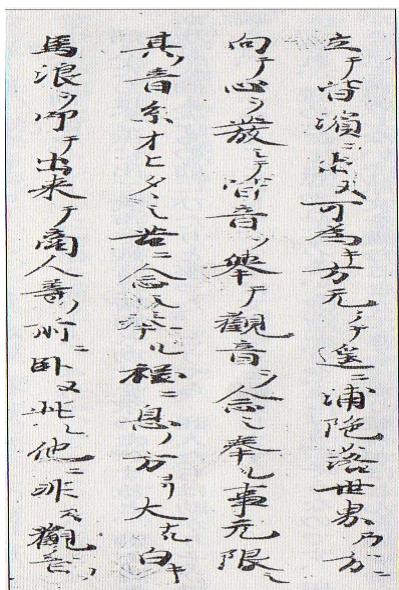 立テ皆濱ニ出ヌ可為キ方无クシテ遥ニ浦陁落世界ノ方ニ
向テ心ヲ發シテ皆音ヲ擧テ觀音ヲ念シ奉ル事无限シ
其ノ音糸オヒタヽシ苦ニ念シ奉ル程ニ息ノ方ヨリ大ナル白キ
馬浪ヲ叩テ出来テ商人等ノ前ニ卧ヌ此レ他ニ非ス觀音ノ